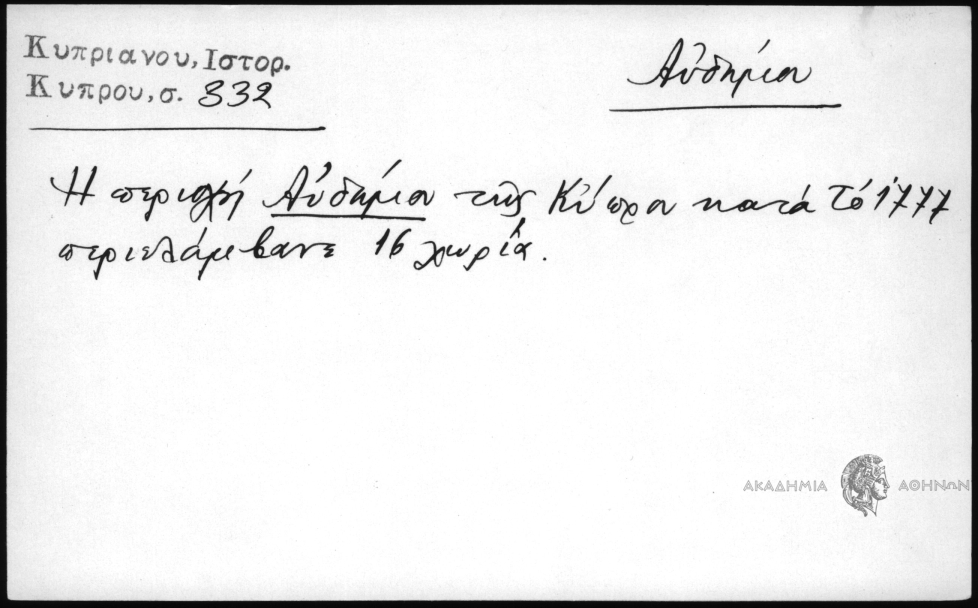 Κυπριανου, Ιστορ.
Κυπρου, σ. 332
Αὐδήμου
Η περιοχή Αὐδήμου τῆς Κύπρου κατά τό 1777
περιελάμβανε 16 χωριά.
ΑΚΑΔΗΜΙΑ ΑΘΗΝΩΝ